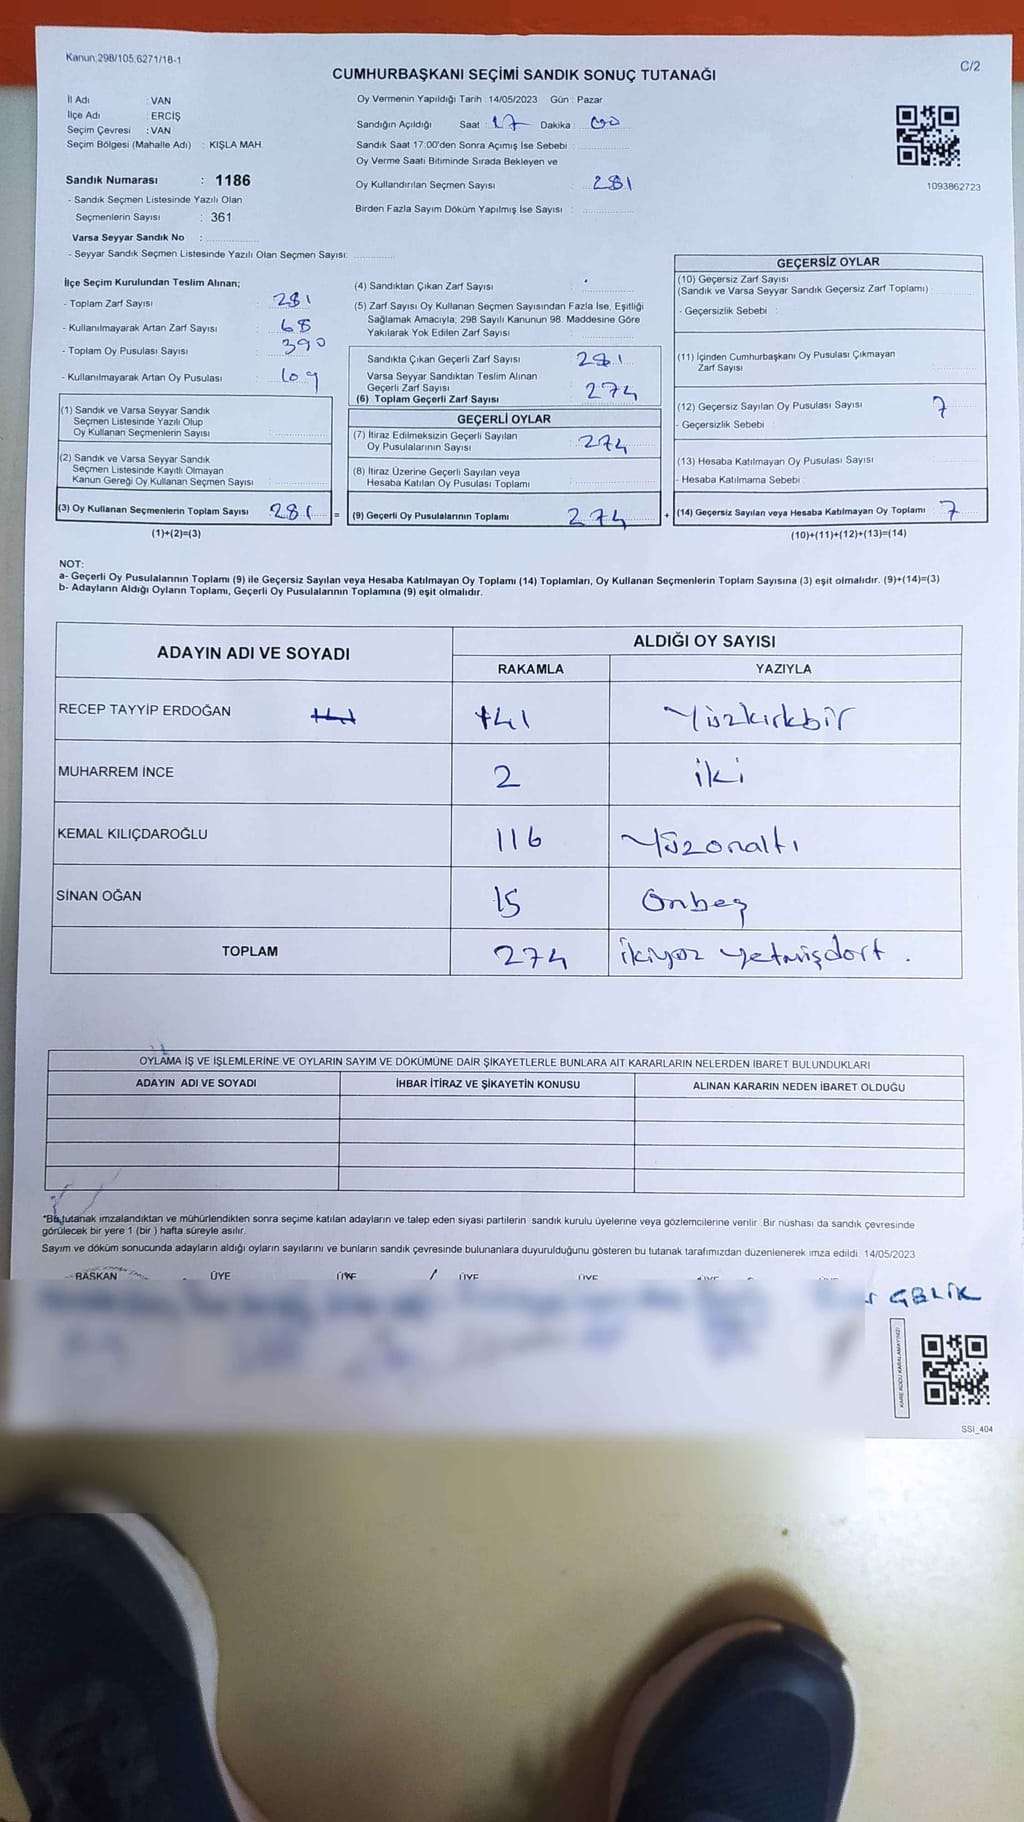 Kanun:298/105;6271/18-1
C/2
CUMHURBAŞKANI SEÇİMİ SANDIK SONUÇ TUTANAĞI
İl Adı : VAN
İlçe Adı : ERCİŞ
Seçim Çevresi : VAN
Seçim Bölgesi (Mahalle Adı) : KIŞLA MAH.
Sandık Numarası : 1186
- Sandık Seçmen Listesinde Yazılı Olan
Seçmenlerin Sayısı : 361
Varsa Seyyar Sandık No :
- Seyyar Sandık Seçmen Listesinde Yazılı Olan Seçmen Sayısı:
Oy Vermenin Yapıldığı Tarih : 14/05/2023 Gün : Pazar
Sandığın Açıldığı Saat : 17 Dakika : 00
Sandık Saat 17:00'den Sonra Açımış İse Sebebi :
Oy Verme Saati Bitiminde Sırada Bekleyen ve
Oy Kullandırılan Seçmen Sayısı : 281
Birden Fazla Sayım Döküm Yapılmış İse Sayısı :
1093862723
İlçe Seçim Kurulundan Teslim Alınan;
- Toplam Zarf Sayısı : 281
- Kullanılmayarak Artan Zarf Sayısı : 68
- Toplam Oy Pusulası Sayısı : 390
- Kullanılmayarak Artan Oy Pusulası : 109
(1) Sandık ve Varsa Seyyar Sandık
Seçmen Listesinde Yazılı Olup
Oy Kullanan Seçmenlerin Sayısı
(2) Sandık ve Varsa Seyyar Sandık
Seçmen Listesinde Kayıtlı Olmayan
Kanun Gereği Oy Kullanan Seçmen Sayısı
(3) Oy Kullanan Seçmenlerin Toplam Sayısı 281 =
(1)+(2)=(3)
(4) Sandıktan Çıkan Zarf Sayısı :
(5) Zarf Sayısı Oy Kullanan Seçmen Sayısından Fazla İse, Eşitliği
Sağlamak Amacıyla; 298 Sayılı Kanunun 98. Maddesine Göre
Yakılarak Yok Edilen Zarf Sayısı :
Sandıkta Çıkan Geçerli Zarf Sayısı 281
Varsa Seyyar Sandıktan Teslim Alınan
Geçerli Zarf Sayısı 274
(6) Toplam Geçerli Zarf Sayısı
GEÇERLİ OYLAR
(7) İtiraz Edilmeksizin Geçerli Sayılan
Oy Pusulalarının Sayısı 274
(8) İtiraz Üzerine Geçerli Sayılan veya
Hesaba Katılan Oy Pusulası Toplamı
(9) Geçerli Oy Pusulalarının Toplamı 274 +
GEÇERSİZ OYLAR
(10) Geçersiz Zarf Sayısı
(Sandık ve Varsa Seyyar Sandık Geçersiz Zarf Toplamı)
- Geçersizlik Sebebi :
(11) İçinden Cumhurbaşkanı Oy Pusulası Çıkmayan
Zarf Sayısı
(12) Geçersiz Sayılan Oy Pusulası Sayısı 7
- Geçersizlik Sebebi :
(13) Hesaba Katılmayan Oy Pusulası Sayısı
- Hesaba Katılmama Sebebi :
(14) Geçersiz Sayılan veya Hesaba Katılmayan Oy Toplamı 7
(10)+(11)+(12)+(13)=(14)
NOT:
a- Geçerli Oy Pusulalarının Toplamı (9) ile Geçersiz Sayılan veya Hesaba Katılmayan Oy Toplamı (14) Toplamları, Oy Kullanan Seçmenlerin Toplam Sayısına (3) eşit olmalıdır. (9)+(14)=(3)
b- Adayların Aldığı Oyların Toplamı, Geçerli Oy Pusulalarının Toplamına (9) eşit olmalıdır.
ADAYIN ADI VE SOYADI ALDIĞI OY SAYISI
RAKAMLA YAZIYLA
RECEP TAYYİP ERDOĞAN 141 Yüzkırkbir
MUHARREM İNCE 2 iki
KEMAL KILIÇDAROĞLU 116 Yüzonaltı
SİNAN OĞAN 15 Onbeş
TOPLAM 274 ikiyüz yetmişdört.
OYLAMA İŞ VE İŞLEMLERİNE VE OYLARIN SAYIM VE DÖKÜMÜNE DAİR ŞİKAYETLERLE BUNLARA AİT KARARLARIN NELERDEN İBARET BULUNDUKLARI
ADAYIN ADI VE SOYADI İHBAR İTİRAZ VE ŞİKAYETİN KONUSU ALINAN KARARIN NEDEN İBARET OLDUĞU
*Bu tutanak imzalandıktan ve mühürlendikten sonra seçime katılan adayların ve talep eden siyasi partilerin sandık kurulu üyelerine veya gözlemcilerine verilir. Bir nüshası da sandık çevresinde
görülecek bir yere 1 (bir ) hafta süreyle asılır.
Sayım ve döküm sonucunda adayların aldığı oyların sayılarını ve bunların sandık çevresinde bulunanlara duyurulduğunu gösteren bu tutanak tarafımızdan düzenlenerek imza edildi. 14/05/2023
BAŞKAN ÜYE ÜYE ÜYE ÜYE ÜYE ÜYE
ÇELİK
KARE KODU KARALAMAYINIZ!
SSI_404